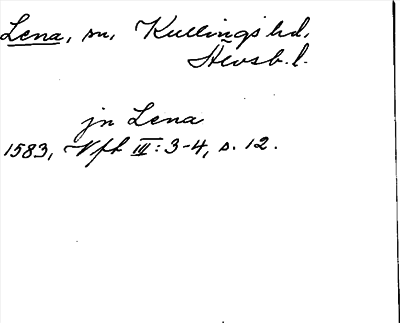 Lena, sn, Kullings hd,
Älvsb. l.
jn Lena
1583, Vft III: 3-4, s. 12.